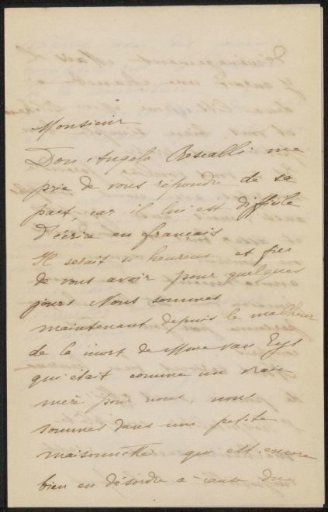 Monsieur
Don Angelo Boscalli me
prie de vous repondre de sa
part, car il lui est difficile
d'écrire en français
Il serait si heureux et fier
de vous avoir pour quelques
jours Nous sommes
maintenant depuis le malheur
de la mort de Mme van Eys
qui était comme une vraie
mère pour nous, nous
sommes dans une petite
maisonnette qui est encore
bien en désordre a cause du